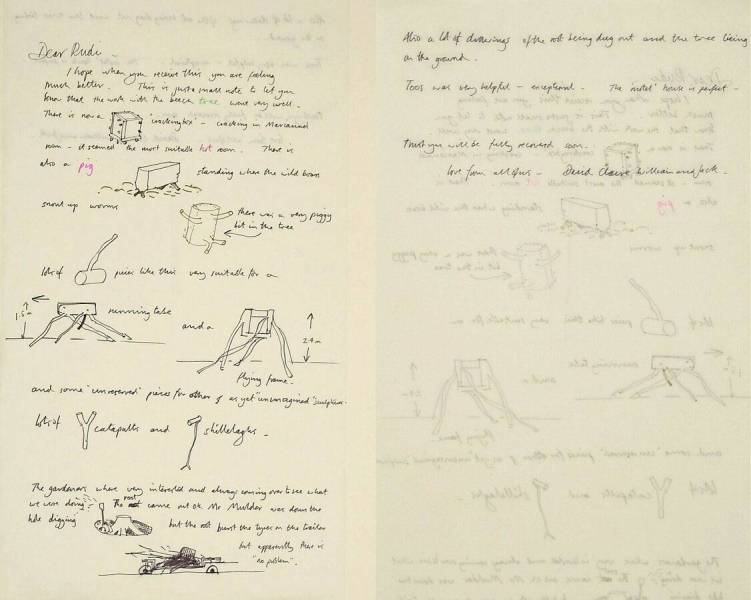 Dear Rudi -
I hope when you receive this you are feeling
much better. This is just a small note to let you
know that the work with the beech tree went very well.
There is now a 'cracking box' - cracking in
room - it seemed the most suitable hot room. There is
also a pig standing where the wild boars
snout up worms
there was a very piggy
bit in the tree
lots of pieces like this very suitable for a
1.5m running table and a 2.4m
flying frame -
and some 'unreserved' pieces for other & as yet "unimagined" sculptures.
lots of catapults and shillelaghs -
The gardeners where very interested and always coming over to see what
we were doing. The root came out ok Mr Mulder was down the
hole digging but the root burst the tyres on the trailor
but apparently there is
"no problem".
Also a lot of drawings of the root being dug out and the tree lieing
on the ground.
Toos was very helpful - exceptional. The 'motel' house is perfect -
trust you will be fully recovered soon.
love from all of us - David Claire William and Jack.